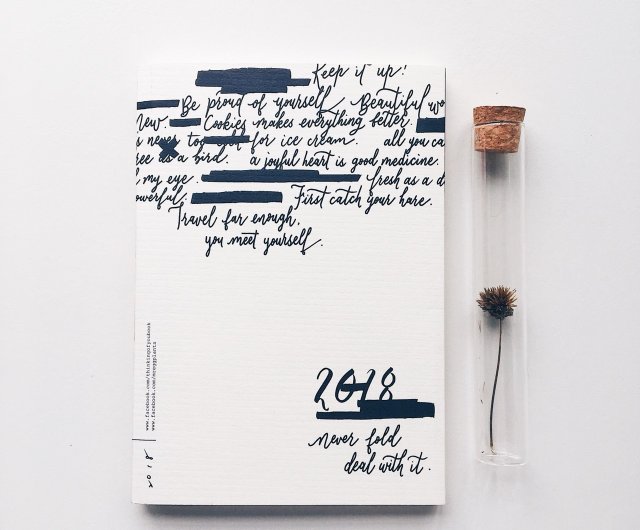 Keep it up!
Be proud of yourself. Beautiful wo
new. Cookies makes everything better.
s never too for ice cream. all you ca
ree as a bird. a joyful heart is good medicine.
l my eye. fresh as a d
owerful. First catch your hare.
Travel far enough,
you meet yourself.
www.facebook.com/thinkingofyoubook
2018
2018
never fold
deal with it.